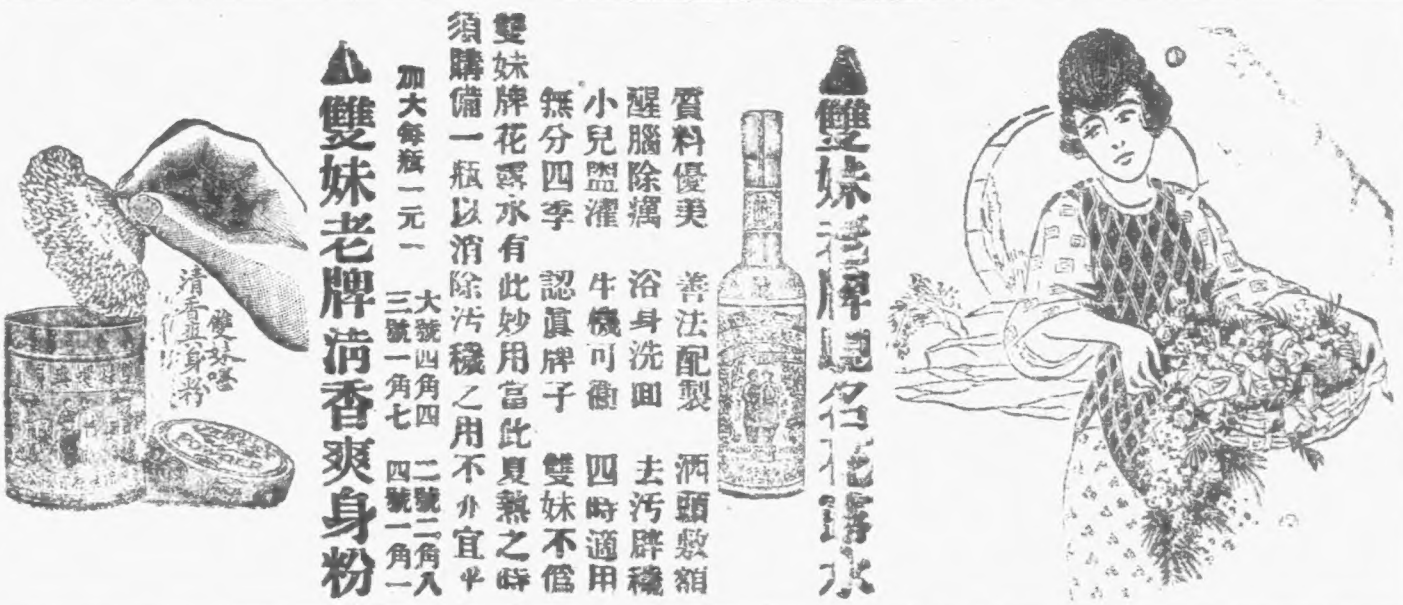 雙妹老牌馳名花露水
質料優美 善法配製 洒頭敷額
醒腦除癘 浴身洗面 去汚辟穢
小兒盥濯 生機可衛 四時適用
無分四季 認眞牌子 雙妹不
雙妹牌花露水有此妙用當此夏熱之時
須購備一瓶以消除汚穢之用不亦宜乎
加大每瓶一元一 大號四角四 二號二角八
三號一角七 四號一角一
雙妹老牌清香爽身粉
雙妹嘜
清香爽身粉